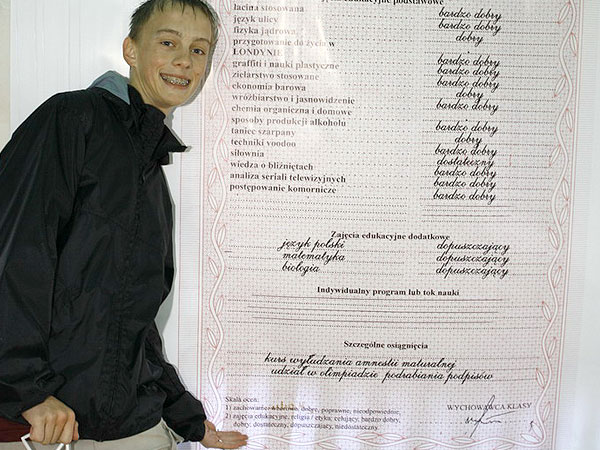 edukacyjne podstawowe
łacina stosowana bardzo dobry
język ulicy bardzo dobry
fizyka jądrowa dobry
przygotowanie do życia w
LONDYNIE bardzo dobry
graffiti i nauki plastyczne bardzo dobry
zielarstwo stosowane bardzo dobry
ekonomia barowa dobry
wróżbiarstwo i jasnowidzenie bardzo dobry
chemia organiczna i domowe
sposoby produkcji alkoholu bardzo dobry
taniec szarpany dobry
techniki voodoo bardzo dobry
siłownia dostateczny
wiedza o bliźniętach bardzo dobry
analiza seriali telewizyjnych bardzo dobry
postępowanie komornicze bardzo dobry
Zajęcia edukacyjne dodatkowe
język polski dopuszczający
matematyka dopuszczający
biologia dopuszczający
Indywidualny program lub tok nauki
Szczególne osiągnięcia
kurs wyłudzania amnestii maturalnej
udział w olimpiadzie podrabiania podpisów
Skala ocen:
1) zachowanie: wzorowe, dobre, poprawne, nieodpowiednie,
2) zajęcia edukacyjne, religia / etyka: celujący, bardzo dobry,
dobry, dostateczny, dopuszczający, niedostateczny.
WYCHOWAWCA KLASY